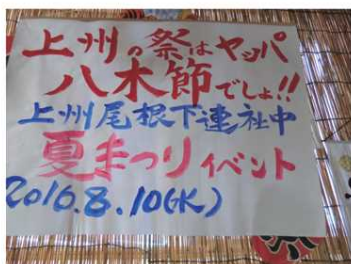 上州の祭はヤッパ
八木節でしょ!!
上州尾根下連社中
夏まつりイベント
2016.8.10(水)